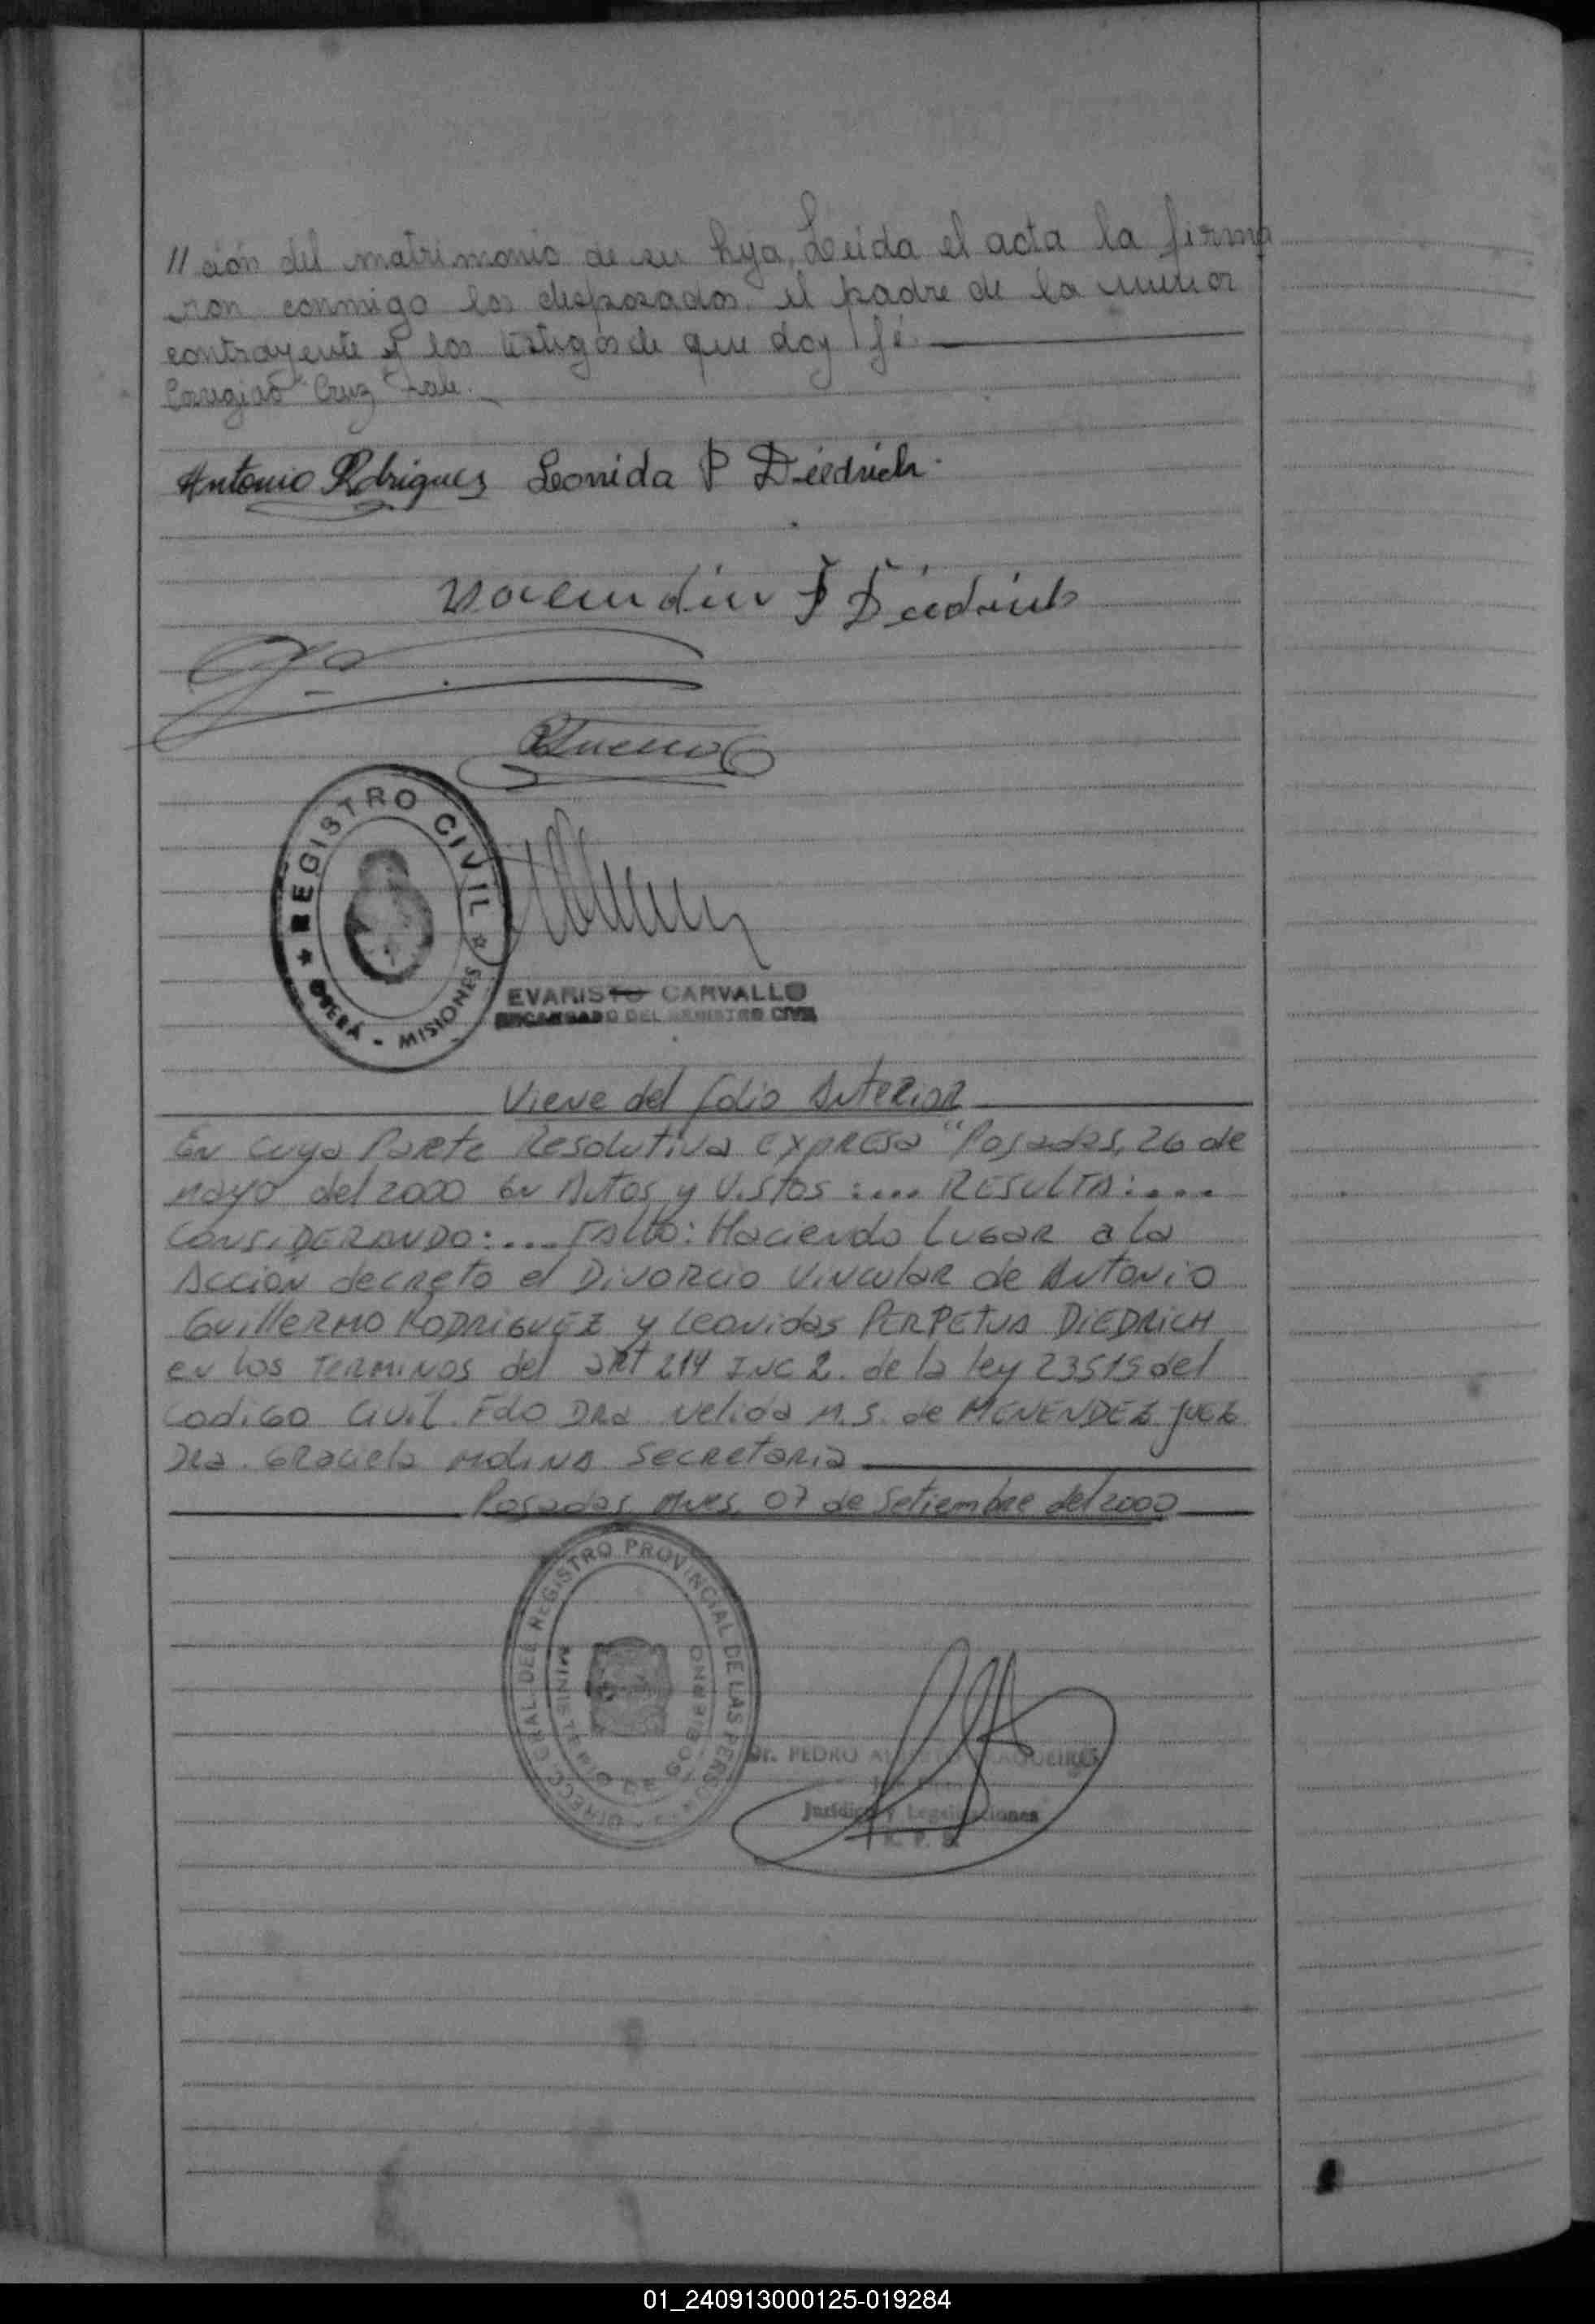 // ción del matrimonio de su hija. Leida el acta la firma
ron conmigo los desposados, el padre de la menor
contrayente y los testigos de que doy fé.
Corregido "Cruz" Vale.
Antonio Rodriguez Leonida P Diedrich
Diedrich
REGISTRO CIVIL
OBERÁ - MISIONES
EVARISTO CARVALLO
ENCARGADO DEL REGISTRO CIVIL
Viene del folio Anterior
En cuya Parte Resolutiva expresa "Posadas, 26 de
mayo del 2000 En Autos y Vistos :.... RESULTA:....
CONSIDERANDO:.... FALLO: Haciendo Lugar a la
Accion decreto el Divorcio Vincular de Antonio
Guillermo RODRIGUEZ y Leonidas PERPETUA DIEDRICH
en los TERMINOS del ART 214 INC 2. de la ley 23515 del
Codigo Civil. Fdo Dra Velida M.S. de MENENDEZ JUEZ
Dra. Graciela Molina Secretaria
Posadas Mnes, 07 de Setiembre del 2000
DIRECC. GRAL. DEL REGISTRO PROVINCIAL DE LAS PERSONAS
MINISTERIO DE GOBIERNO
Dr. PEDRO
Jurídico y Legalizaciones
R. P. P.
01_240913000125-019284